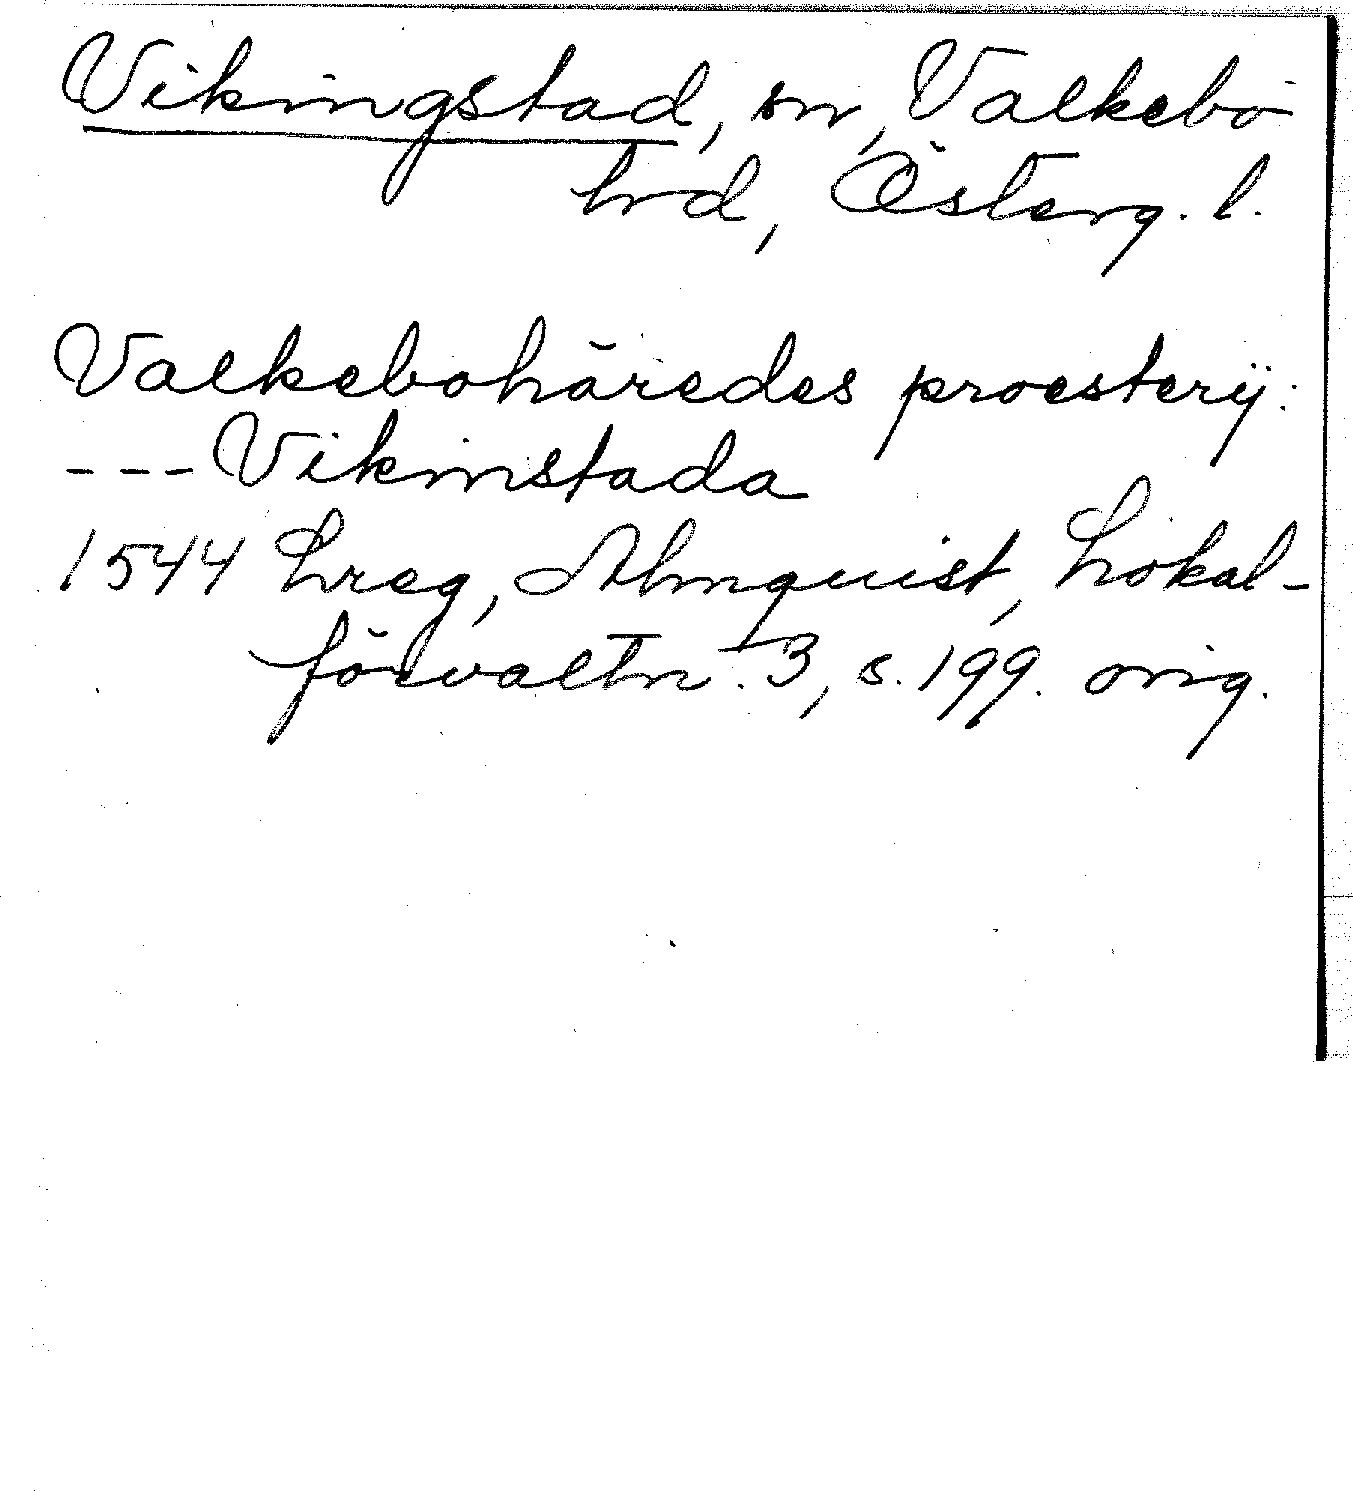 Vikingstad, sn, Valkebo
hrd, Österg. l.
Valkebohäredes proesterij:
--- Vikinstada
1544 Lreg, Almquist, Lokal-
förvaltn. 3, s. 199. orig.